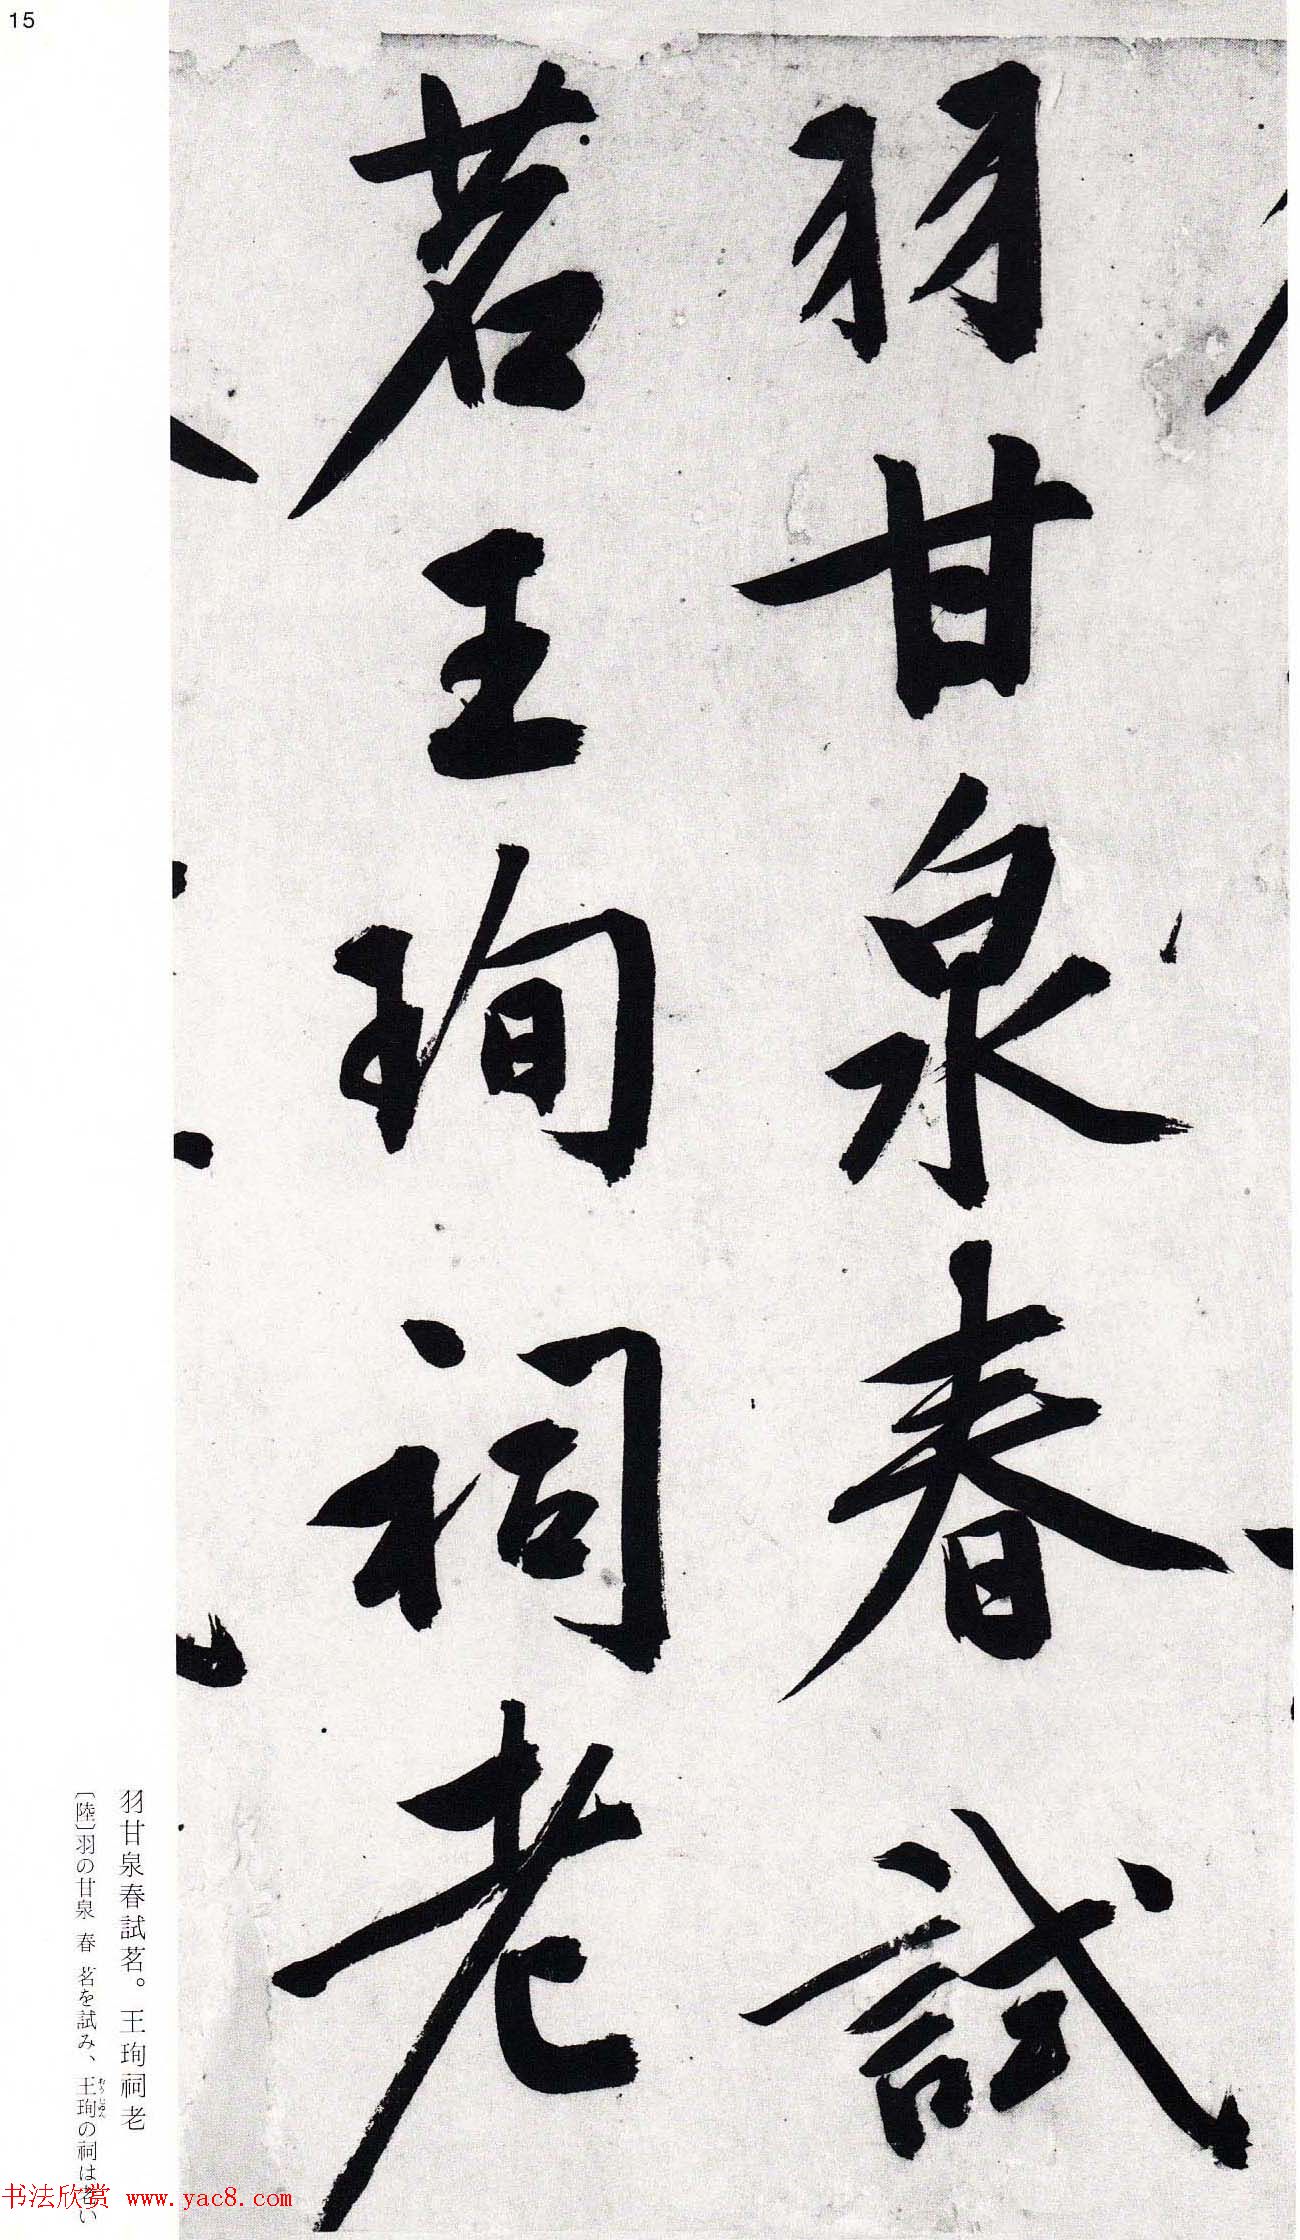 15
羽甘泉春試
茗王珣祠老
羽甘泉春試茗。王珣祠老
〔陸〕羽の甘泉 春 茗を試み、王珣の祠は老い
おう じゅん
书法欣赏 www.yac8.com